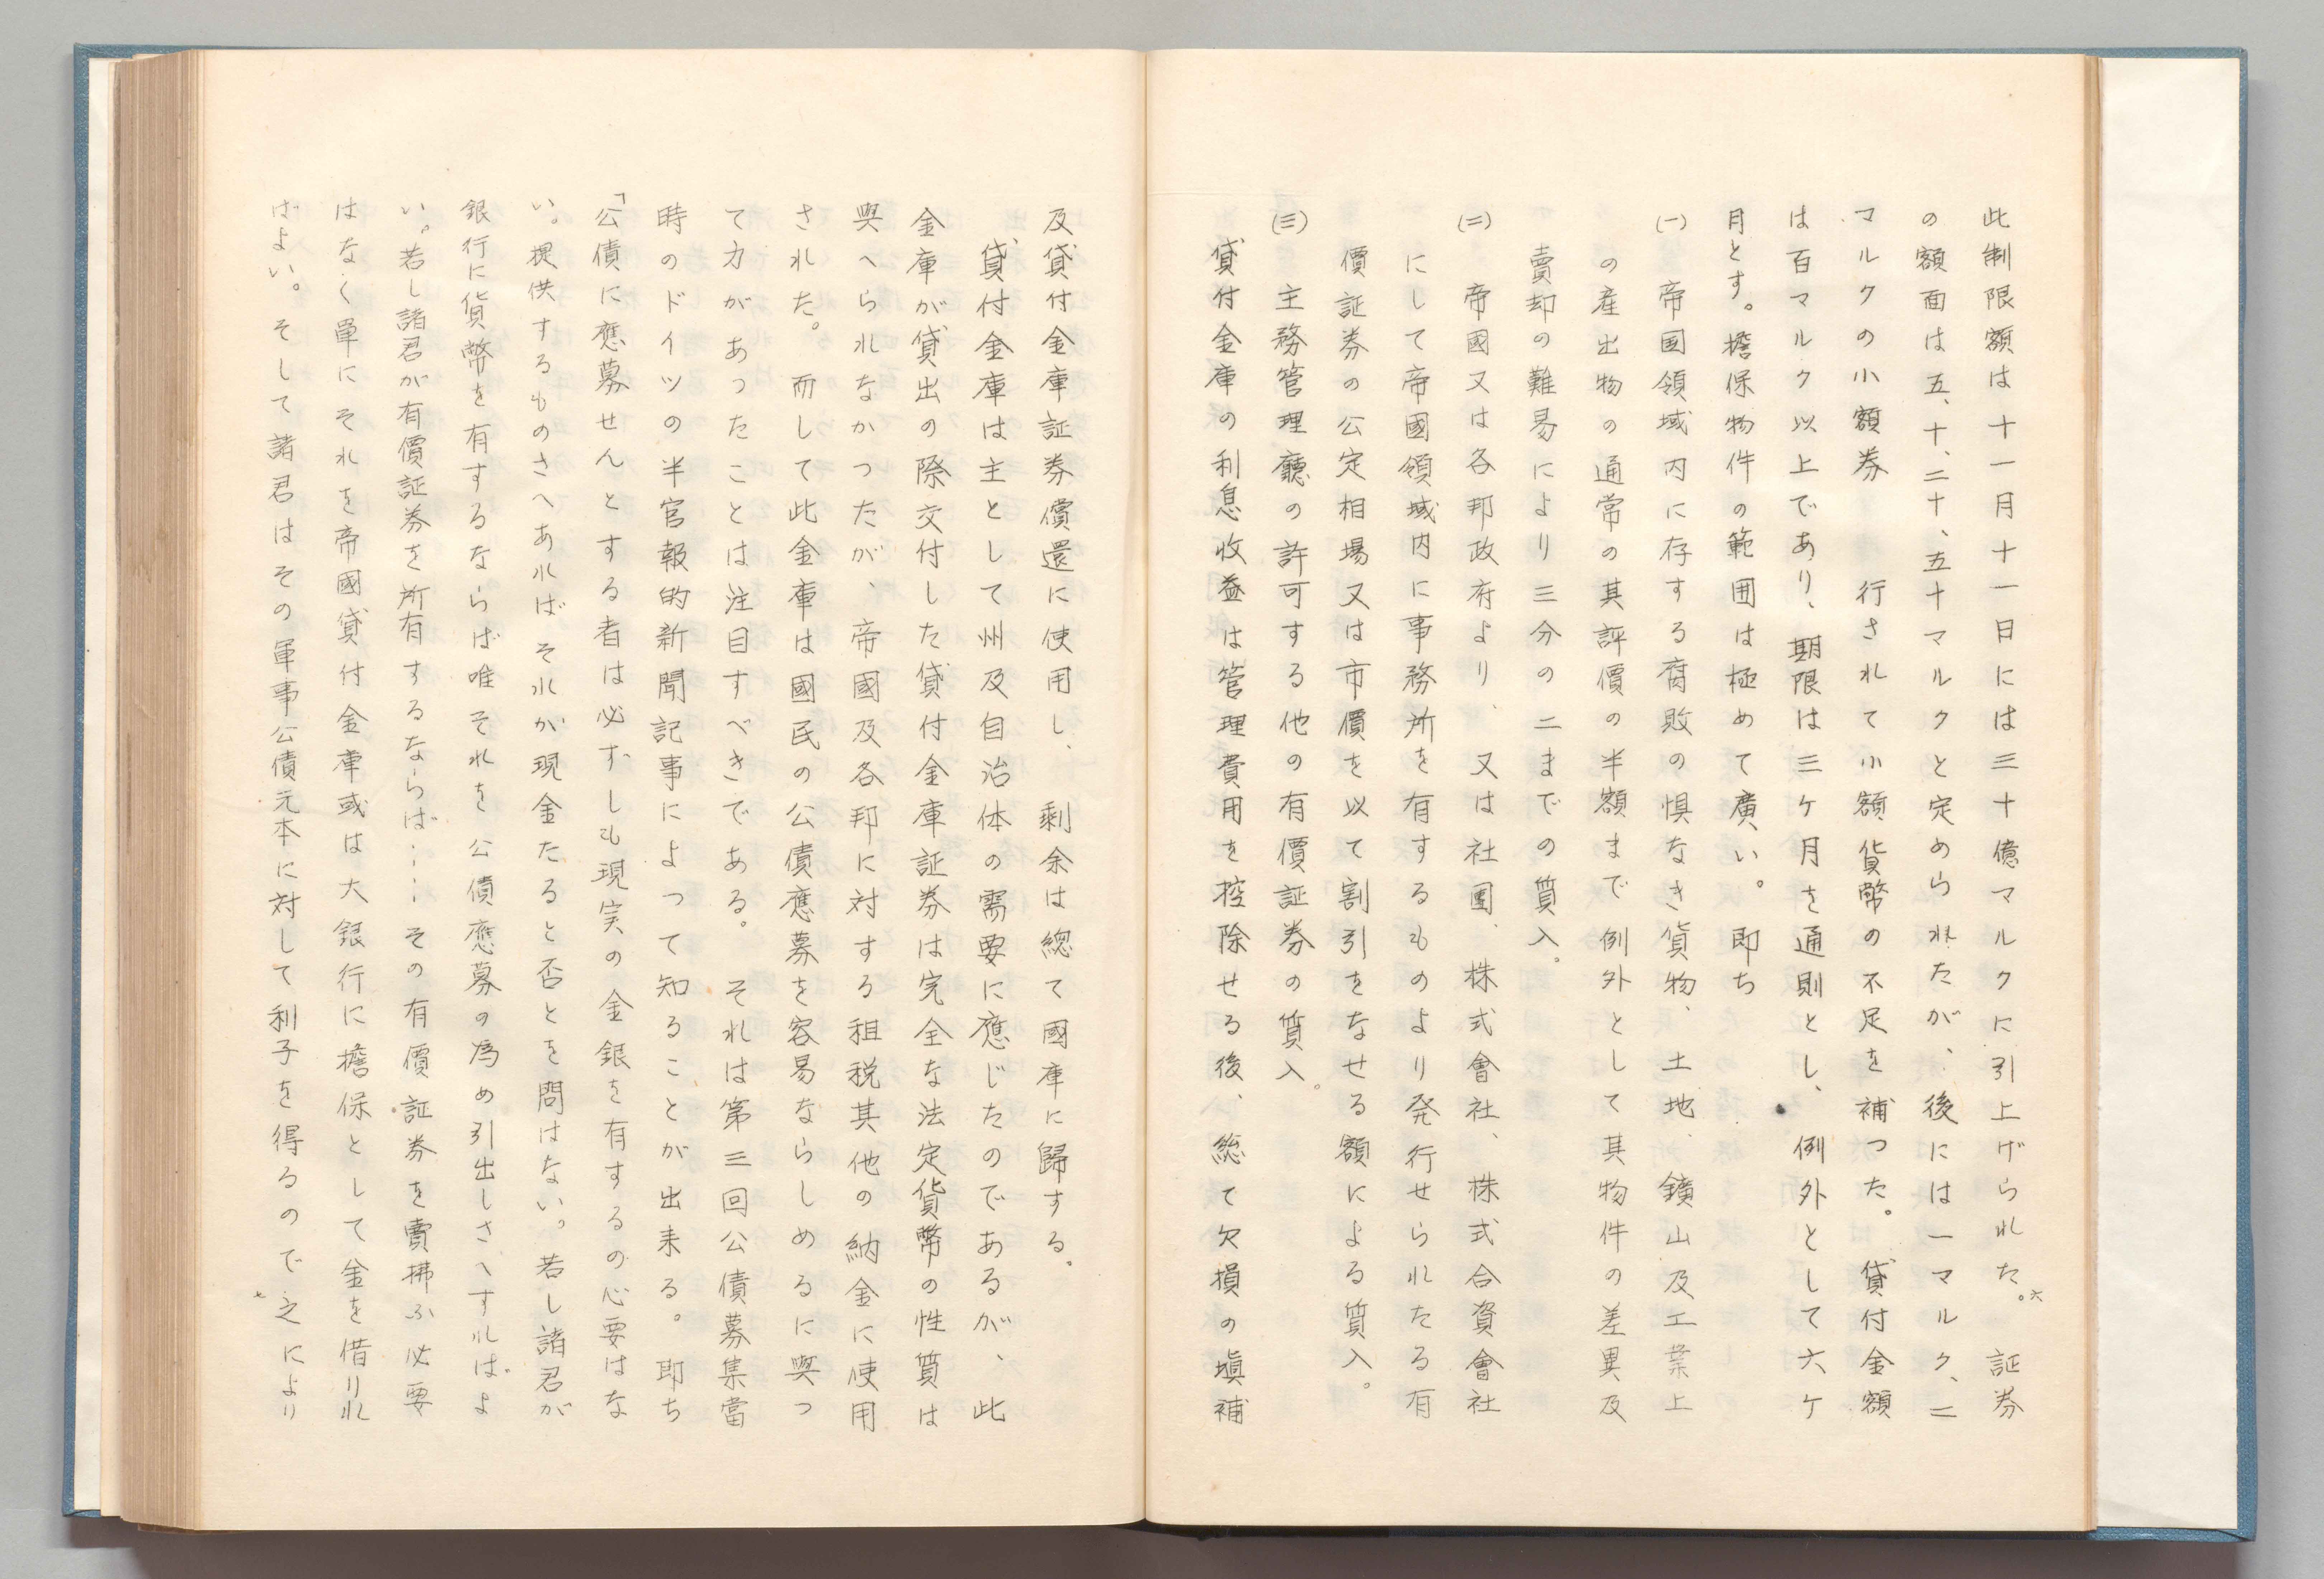 此制限額は十一月十一日には三十億マルクに引上げられた。六 証券
の額面は五、十、二十、五十マルクと定められたが、後には一マルク、二
マルクの小額券 行されて小額貨幣の不足を補つた。貸付金額
は百マルク以上であり、期限は三ケ月を通則とし、例外として六ケ
月とす。擔保物件の範囲は極めて廣い。即ち
(一) 帝国領域内に存する腐敗の惧なき貨物、土地、鑛山及工業上
の産出物の通常の其評價の半額まで例外として其物件の差異及
賣却の難易により三分の二までの質入。
(二) 帝國又は各邦政府より、又は社團、株式會社、株式合資會社
にして帝國領域内に事務所を有するものより発行せられたる有
價証券の公定相場又は市價を以て割引をなせる額による質入。
(三) 主務管理廳の許可する他の有價証券の質入。
貸付金庫の利息收益は管理費用を控除せる後、総て欠損の塡補
及貸付金庫証券償還に使用し、剰余は總て國庫に歸する。
貸付金庫は主として州及自治体の需要に應じたのであるが、此
金庫が貸出の際交付した貸付金庫証券は完全な法定貨幣の性質は
與へられなかつたが、帝國及各邦に対する租税其他の納金に使用
された。而して此金庫は國民の公債應募を容易ならしめるに與つ
て力があつたことは注目すべきである。それは第三回公債募集當
時のドイツの半官報的新聞記事によつて知ることが出来る。即ち
「公債に應募せんとする者は必ずしも現実の金銀を有するの必要はな
い。提供するものさへあればそれが現金たると否とを問はない。若し諸君が
銀行に貨幣を有するならば唯それを公債應募の為め引出しさへすればよ
い。若し諸君が有價証券を所有するならば……その有價証券を賣拂ふ必要
はなく單にそれを帝國貸付金庫或は大銀行に擔保として金を借りれ
ばよい。そして諸君はその軍事公債元本に対して利子を得るので之により七